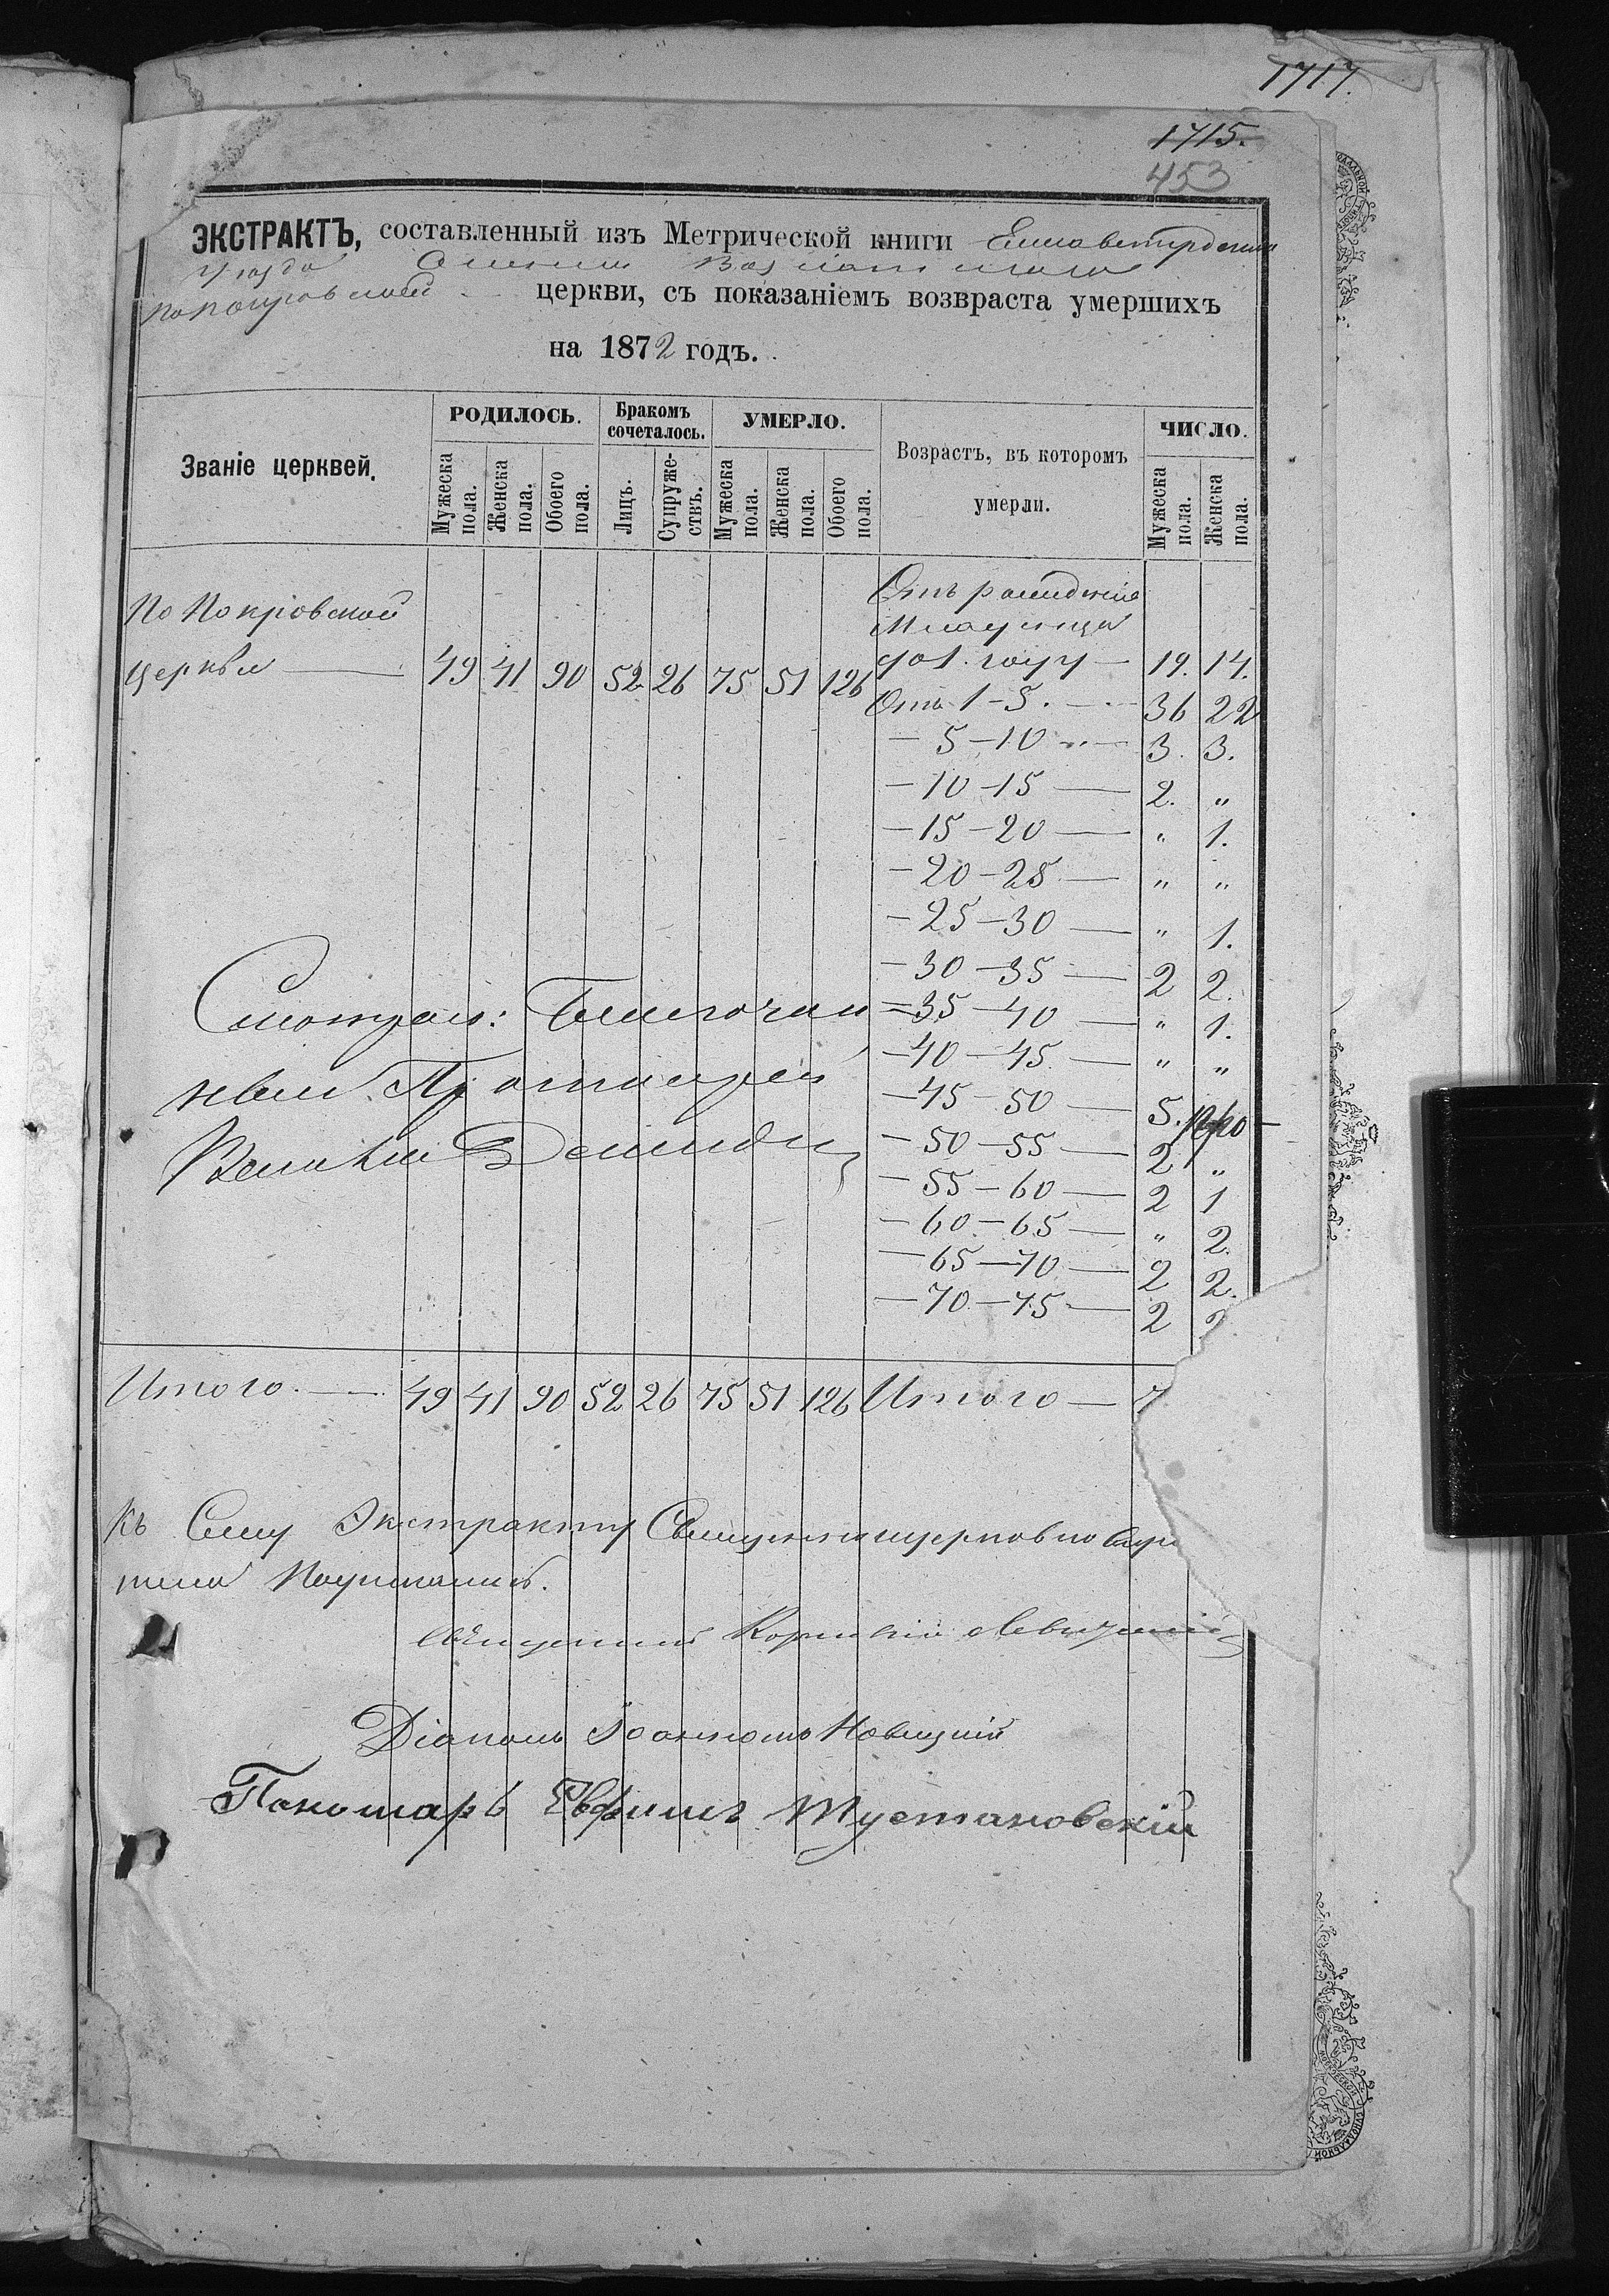 1717.
1715.
453
ЭКСТРАКТЪ, составленный изъ Метрической книги Елисаветградскаго
уѣзда
по Покровской церкви, съ показаніемъ возвраста умершихъ
на 1872 годъ.
Званіе церквей. РОДИЛОСЬ. Бракомъ сочеталось. УМЕРЛО. Возрастъ, въ котором умерли. ЧИСЛО.
Мужеска пола. Женска пола. Обоего пола. Лицъ. Супружествъ. Мужеска пола. Женска пола. Обоего пола. Мужеска пола. Женска пола.
По Покровской
церкви — 49 41 90 52 26 75 51 126
Отъ рожденія
младенца
до 1. году — 19. 14.
Отъ 1-5. — 36 22
— 5-10 — 3. 3.
— 10-15 — 2. „
— 15-20 — „ 1.
— 20-25 — „ „
— 25-30 — „ 1.
— 30-35 — 2 2.
— 35-40 — „ 1.
— 40-45 — „ „
— 45-50 — 5.
— 50-55 — 2 „
— 55-60 — 2 1
— 60-65 — „ 2.
— 65-70 — 2 2.
— 70-75 — 2 2
Смотрѣлъ: Благочин
ный Протоіерей
Итого. — 49 41 90 52 26 75 51 126 Итого — 7
Къ Сему Экстракту Священноцерковнослу
тели Подписались.
Священникъ Левицкій
Діаконъ Іоаннъ Новицкій
Пономарь Евфимъ Тустановскій